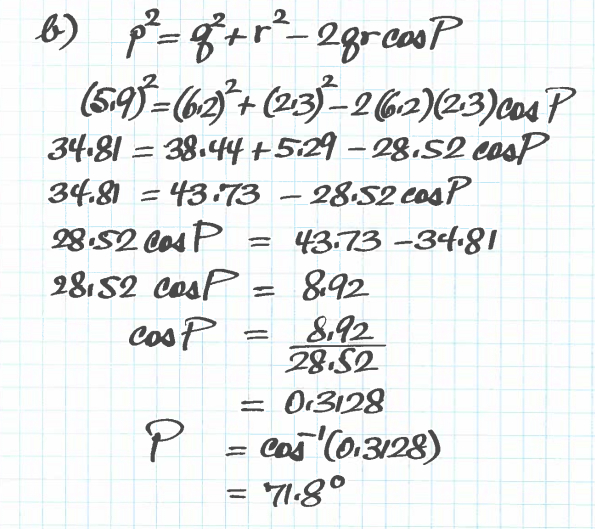 b) p² = q² + r² - 2qr cos P
(5.9)² = (6.2)² + (2.3)² - 2(6.2)(2.3) cos P
34.81 = 38.44 + 5.29 - 28.52 cos P
34.81 = 43.73 - 28.52 cos P
28.52 cos P = 43.73 - 34.81
28.52 cos P = 8.92
cos P = 8.92/28.52
= 0.3128
P = cos⁻¹(0.3128)
= 71.8°